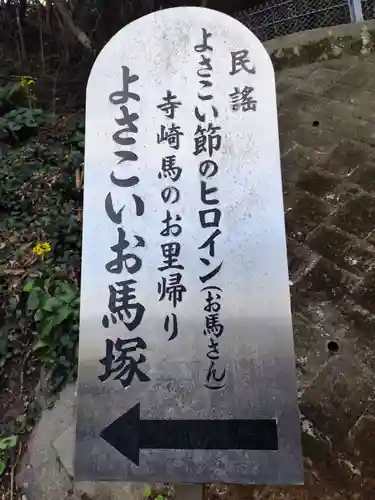 民謡
よさこい節のヒロイン(お馬さん)
寺崎馬のお里帰り
よさこいお馬塚